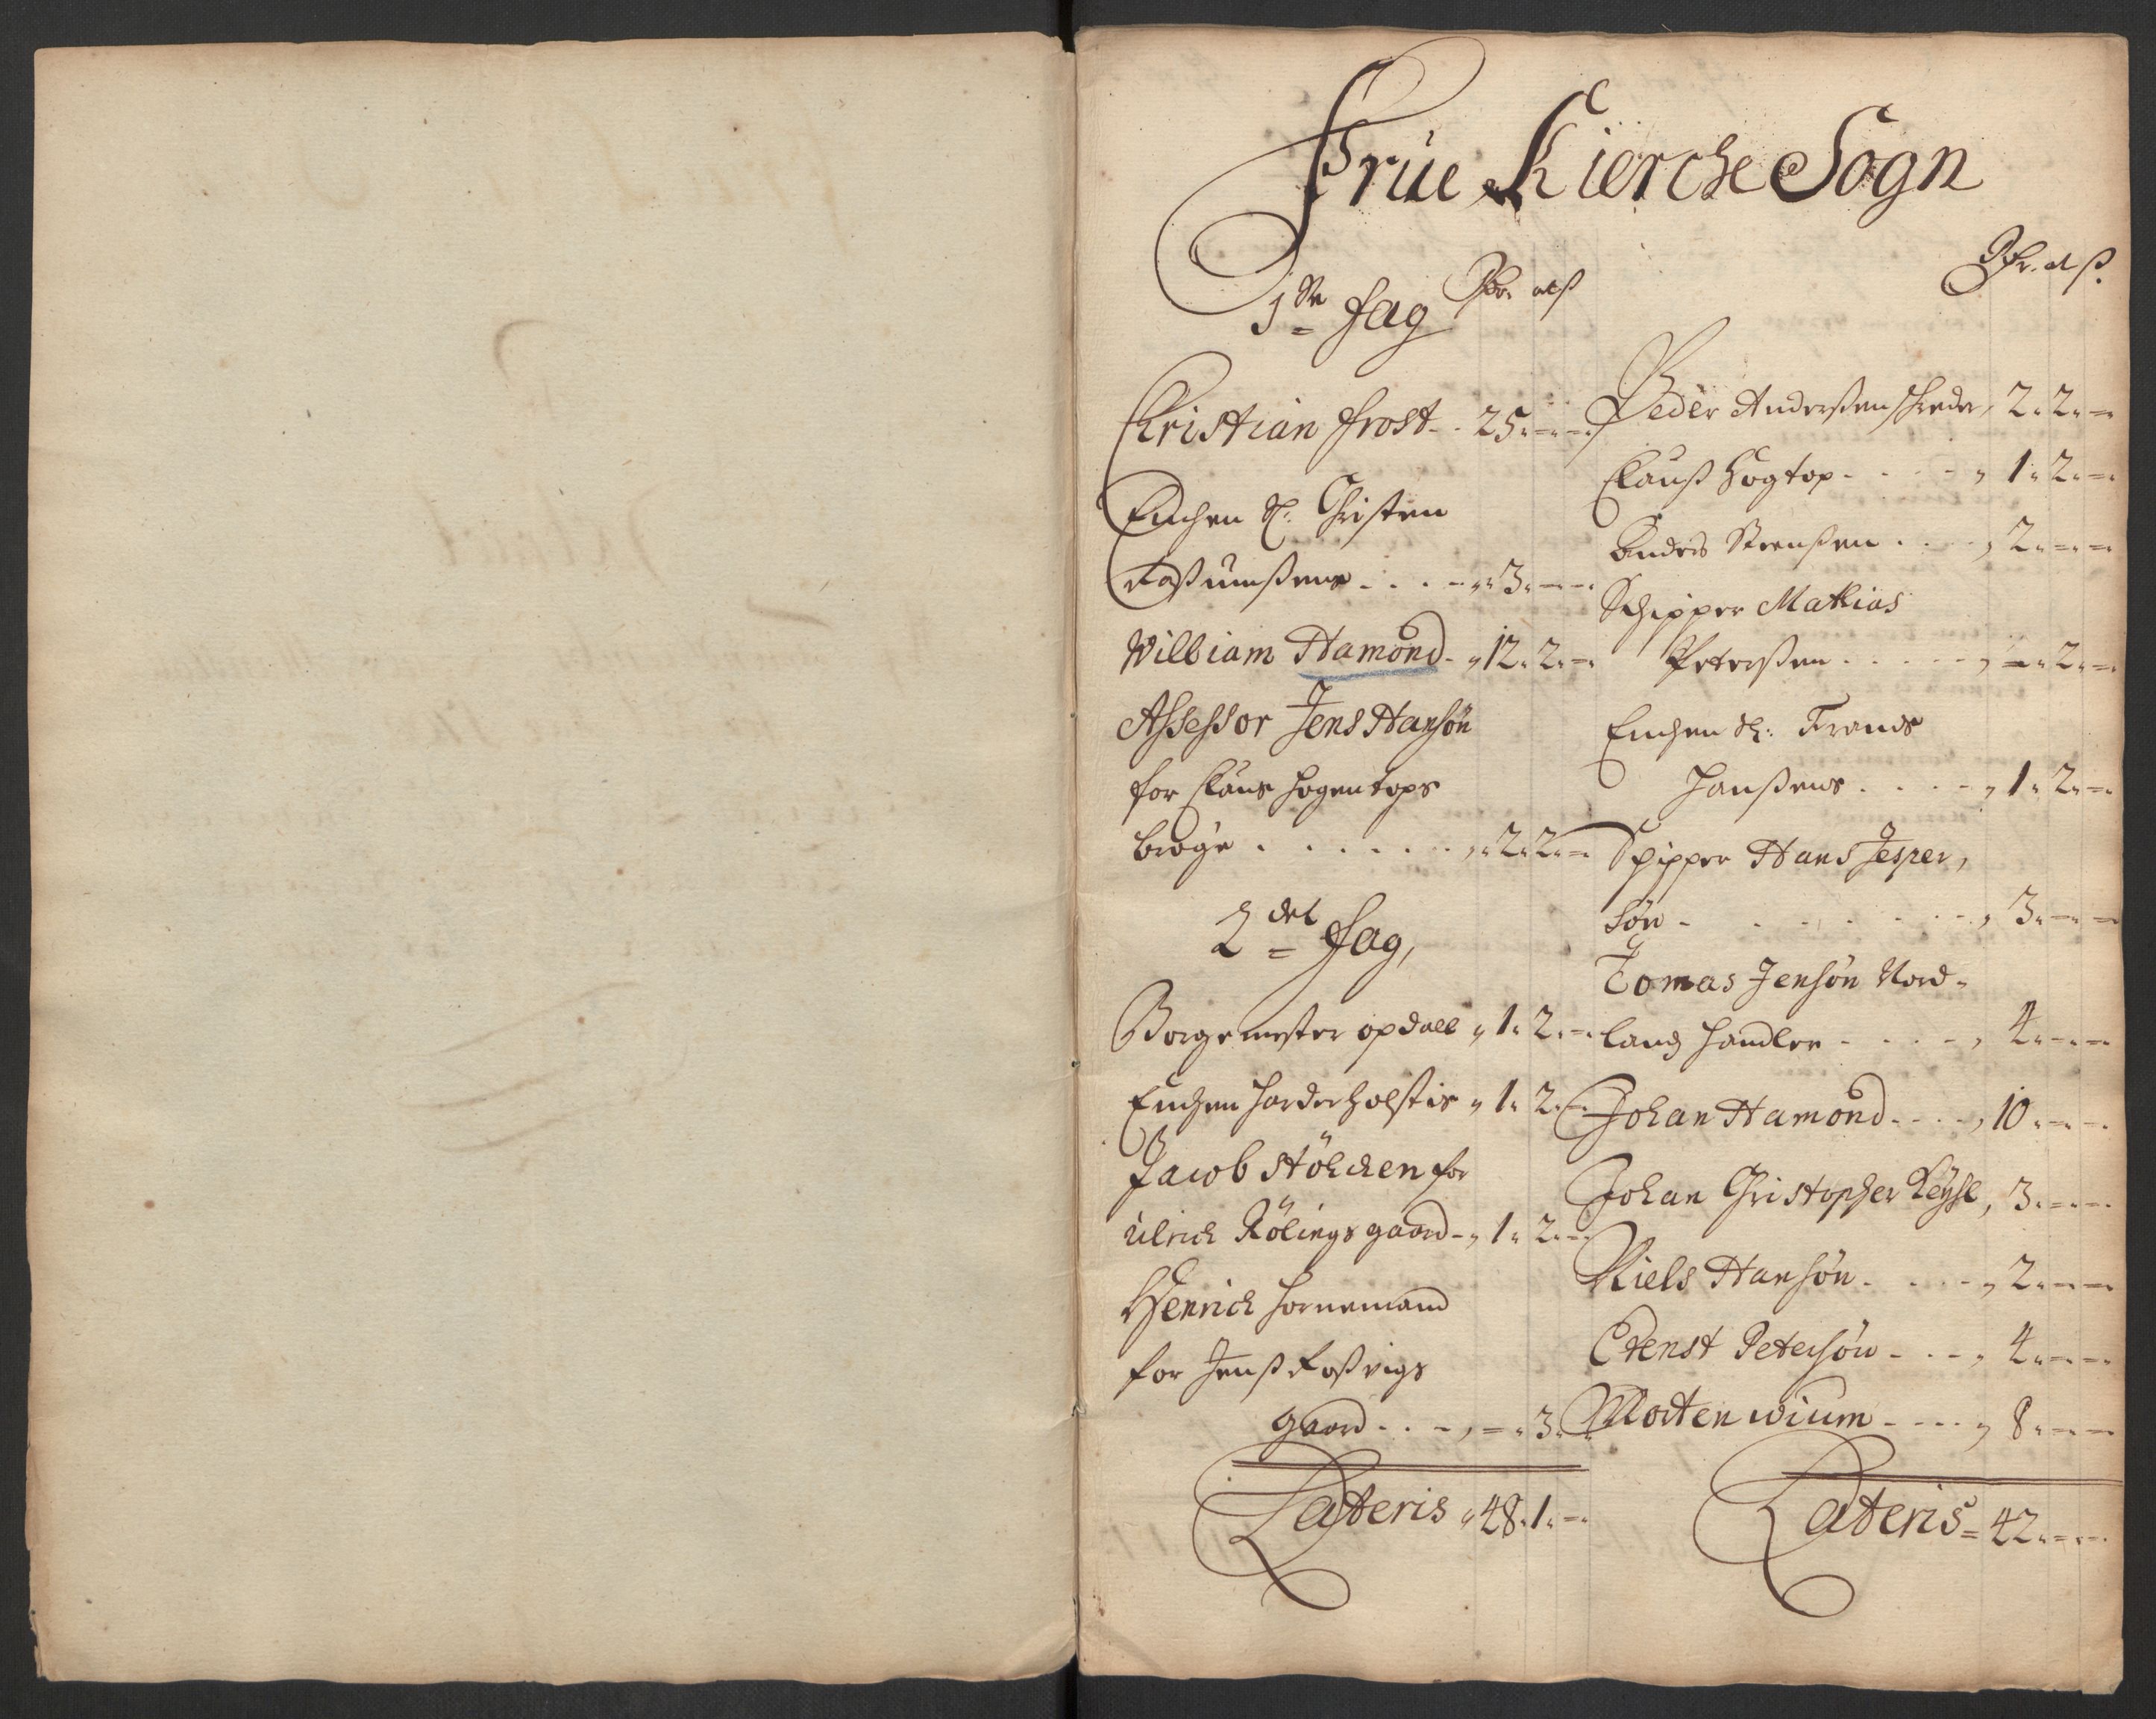 Frúe Kierche Sogn
1ste fag
Christian frost - - 25 " - " -
Enchen Sl: Christen
Rasmussens - - - - - " 3 " - " -
William Hamond - " 12 " 2 " -
Assessor Jens Hansøn
for Claus Hogentops
brøge - - - - - - " 2 " 2 " -
2det fag,
Borgemester opdall " 1 " 2 " -
Enchen Harder Holstis " 1 " 2 " -
Jacob Stöhcken for
Ulrich Rölings gaard - " 1 " 2 " -
Henrich Hornemand
for Jenß Koßvigs
gaard - - - , - " 3 " -
Lateris " 48 " 1 " -
Peder Anderßen , 2 " 2 " -
Clauß Hogtop - - - - " 1 " 2 " -
Anders Steenßen - - - , 2 " - " -
Schipper Mathias
Peterßen - - - - - , - " 2 " -
Enchen Sl: Frands
Hanßens - - - - " 1 " 2 " -
Schipper Hans Jesper,
søn - - - - - - - , 3 " - " -
Tomas Jensøn Nord-
lands handler - - - - , 4 " - " -
Johan Hamond - - - - , 10 " - " -
Johan Christopher , 3 " - " -
Niels Hansøn - - - - " 2 " - " -
Petersøn - - - , 4 " - " -
Morten wium - - - - " 8 " - " -
Lateris = 42 " - " -